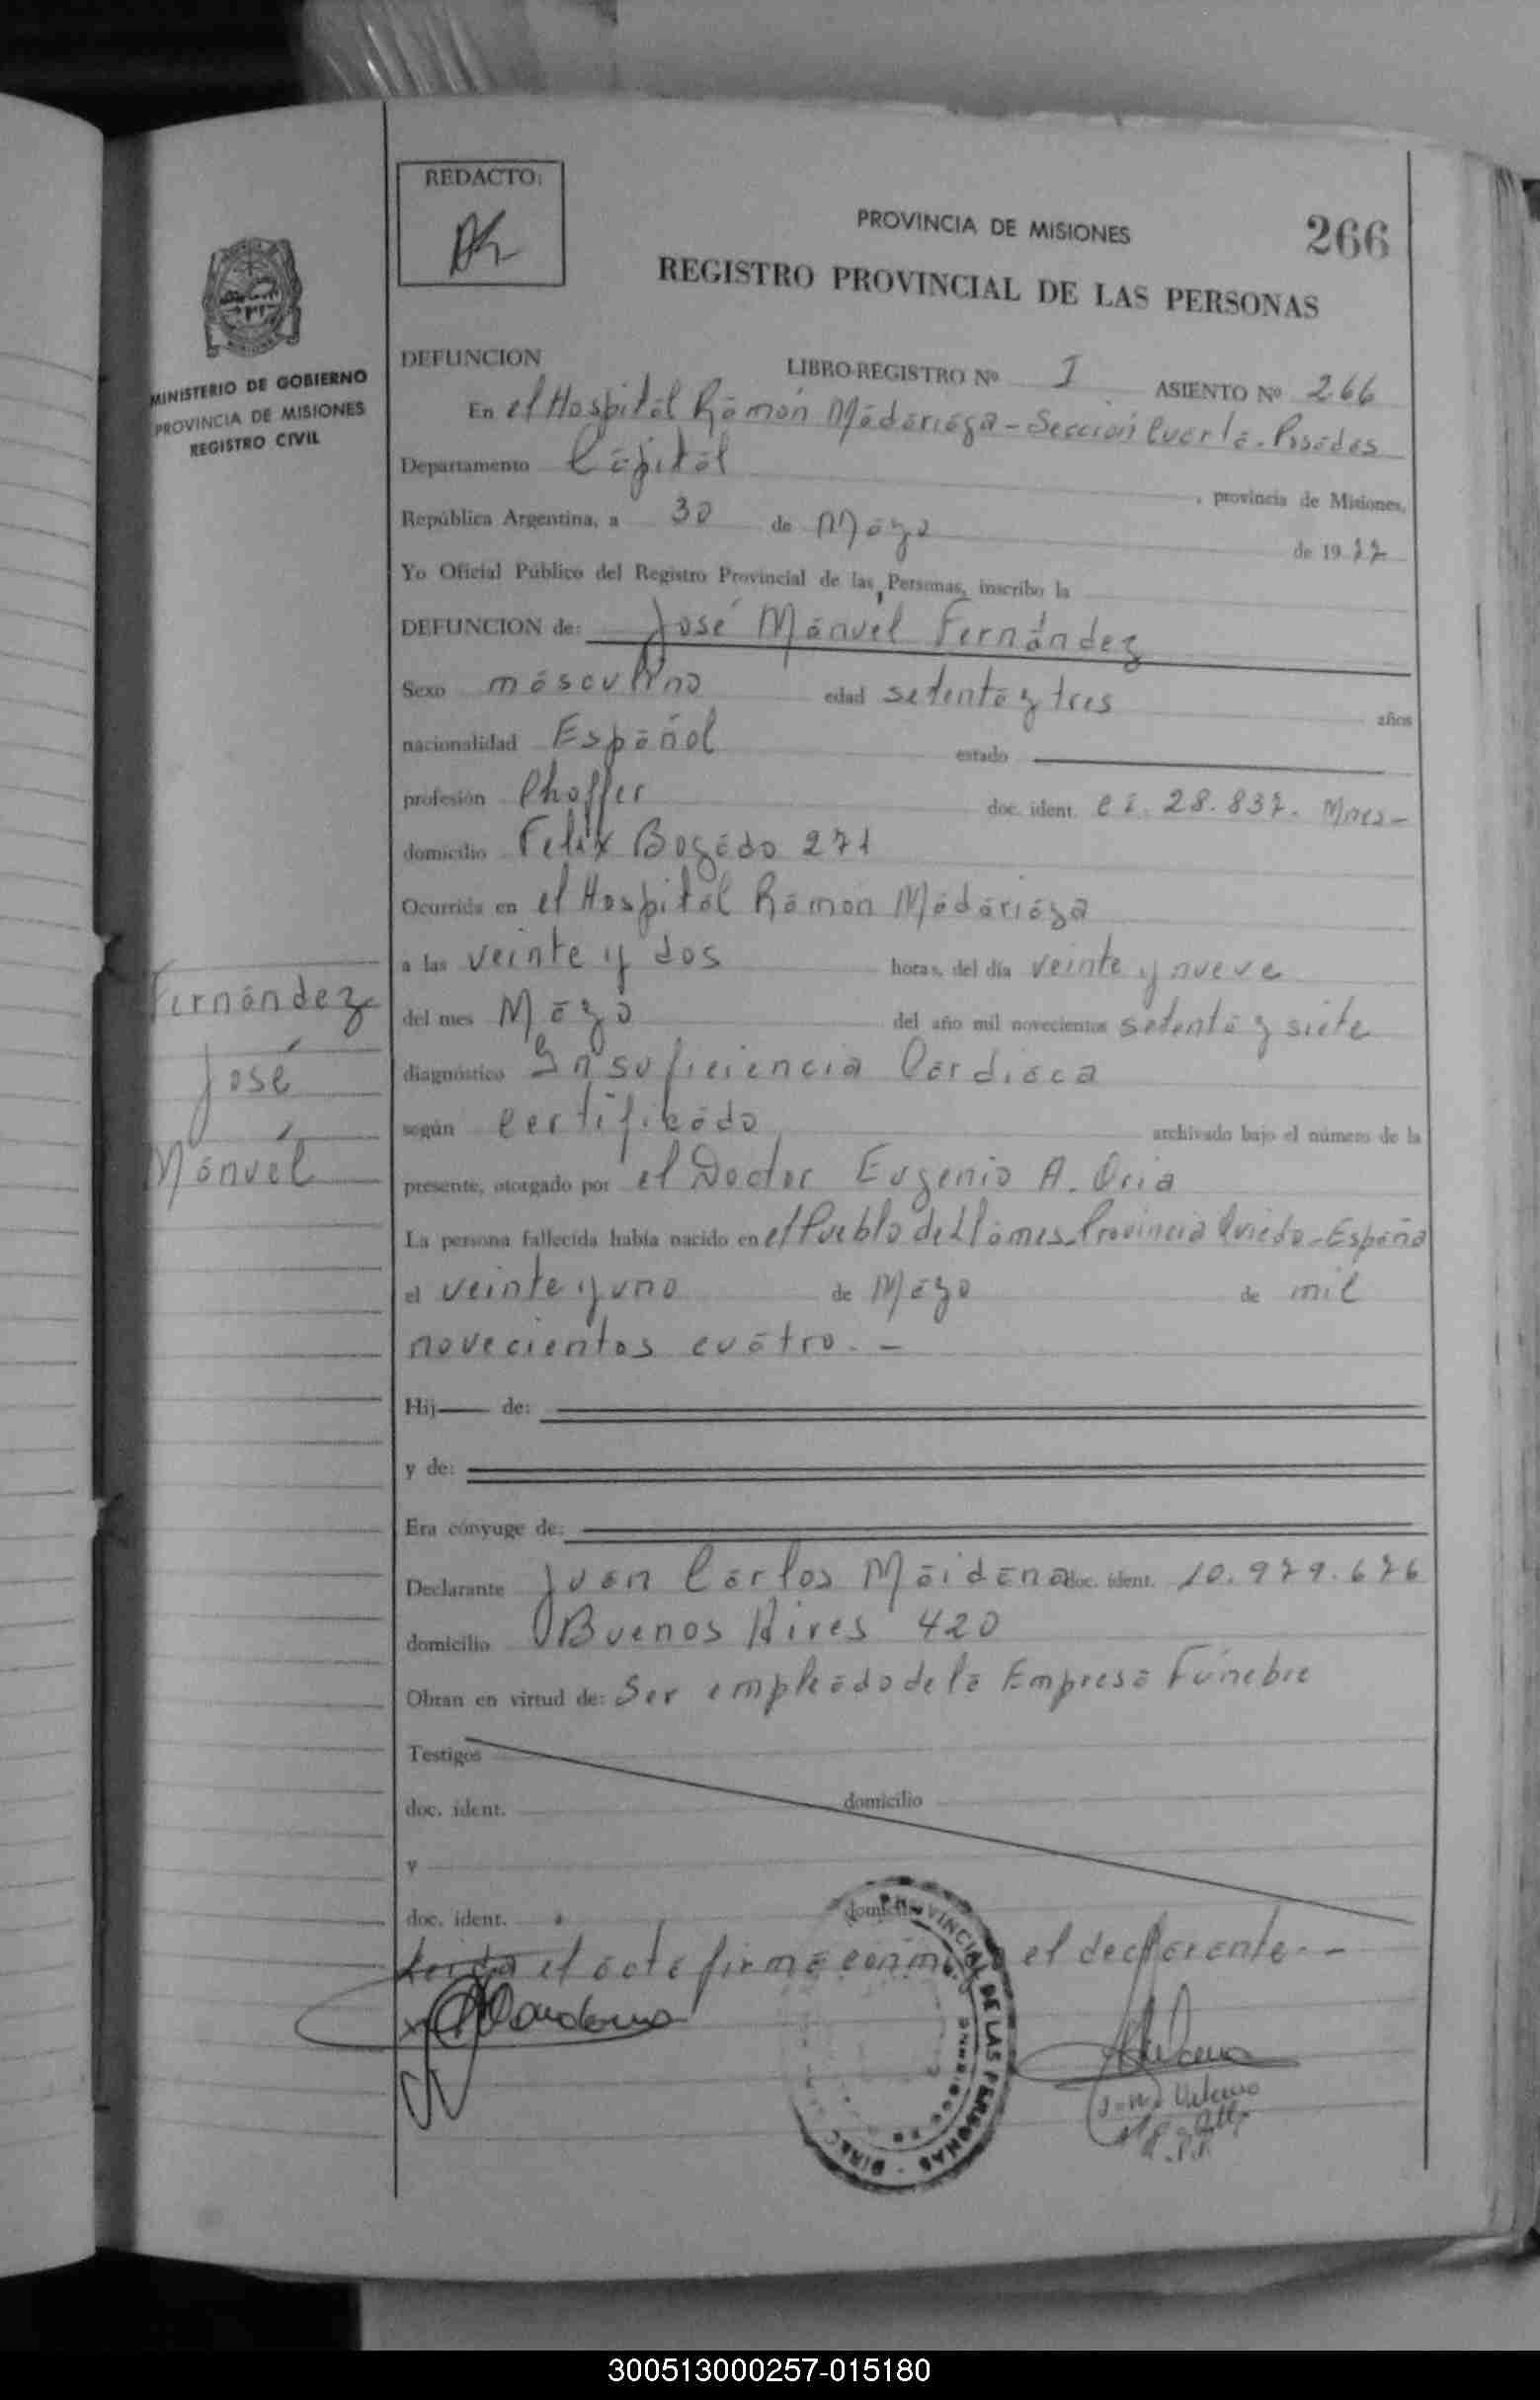 REDACTO:
PROVINCIA DE MISIONES
266
REGISTRO PROVINCIAL DE LAS PERSONAS
MINISTERIO DE GOBIERNO
PROVINCIA DE MISIONES
REGISTRO CIVIL
DEFUNCION
LIBRO-REGISTRO Nº I ASIENTO Nº 266
En el Hospital Ramón Madariaga - Sección Cuarta - Posadas
Departamento Capital , provincia de Misiones,
República Argentina, a 30 de Mayo de 1977
Yo Oficial Público del Registro Provincial de las Personas, inscribo la
DEFUNCION de: José Manuel Fernández
Sexo masculino edad setenta y tres años
nacionalidad Español estado
profesión Choffer doc. ident. C I. 28.837. Mnes-
domicilio Felix Bogado 271
Ocurrida en el Hospital Ramon Madariaga
a las veinte y dos horas, del día veinte y nueve
del mes Mayo del año mil novecientos setenta y siete
diagnóstico Insuficiencia Cardiaca
según certificado archivado bajo el número de la
presente, otorgado por el Doctor Eugenio A. Oria
La persona fallecida había nacido en el Pueblo de Llames Provincia Oviedo - España
el veinte y uno de Mayo de mil
novecientos cuatro. -
Fernández
José
Manuel
Hij de:
y de:
Era cónyuge de:
Declarante Juan Carlos Maidana doc. ident. 10.979.676
domicilio Buenos Aires 420
Obran en virtud de: Ser empleado de la Empresa Fúnebre
Testigos
doc. ident. domicilio
y
doc. ident. domicilio
Leida el acta firma conmigo el declarante. -
PROVINCIAL DE LAS PERSONAS - DIREC
300513000257-015180